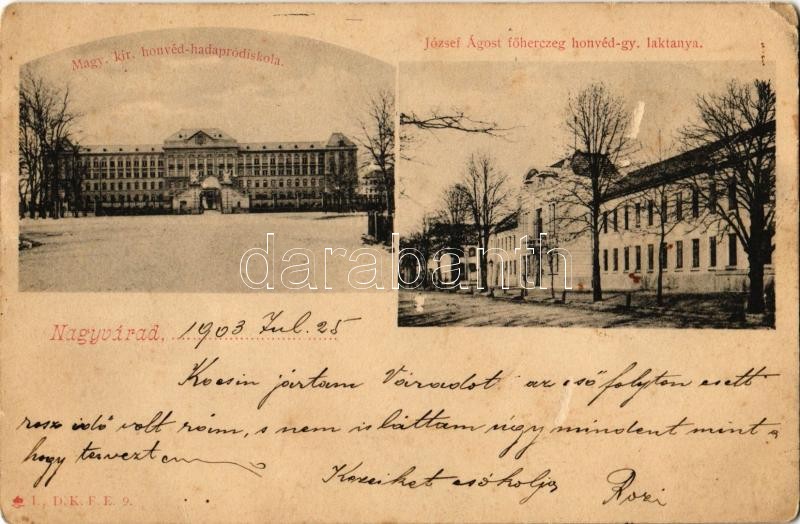 Magy. kir. honvéd-hadapródiskola.
József Ágost főherczeg honvéd-gy. laktanya.
darabanth
Nagyvárad, 1903 Jul. 25
Kocsin jártam Váradot az eső folyton esett
rosz idő volt reám, s nem is láttam úgy mindent mint a
hogy terveztem
Kezeiket csókolja Rozi
I., D. K. F. E. 9.